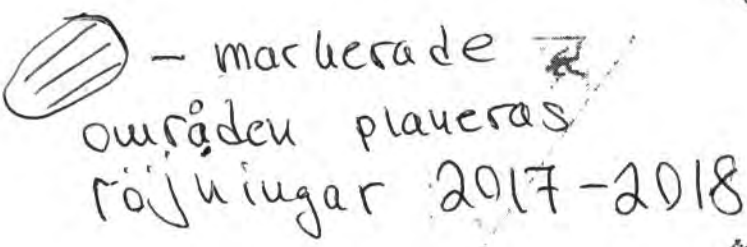 – markerade
områden planeras
röjningar 2017-2018